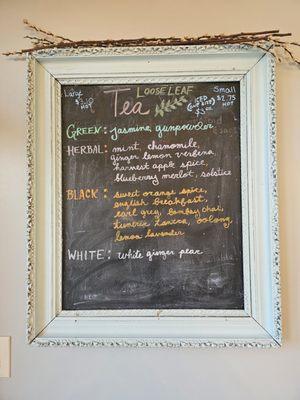 LOOSE LEAF
Tea
Large
HOT
Small
$2.75
HOT
ICED
GREEN: Jasmine, gunpowder
HERBAL: mint, chamomile,
ginger lemon verbena
harvest apple spice,
blueberry merlot, solstice
BLACK: sweet orange spice,
english breakfast,
earl grey, bombay chai,
lumbia lantra, oolong,
lemon lavender
WHITE: white ginger pear